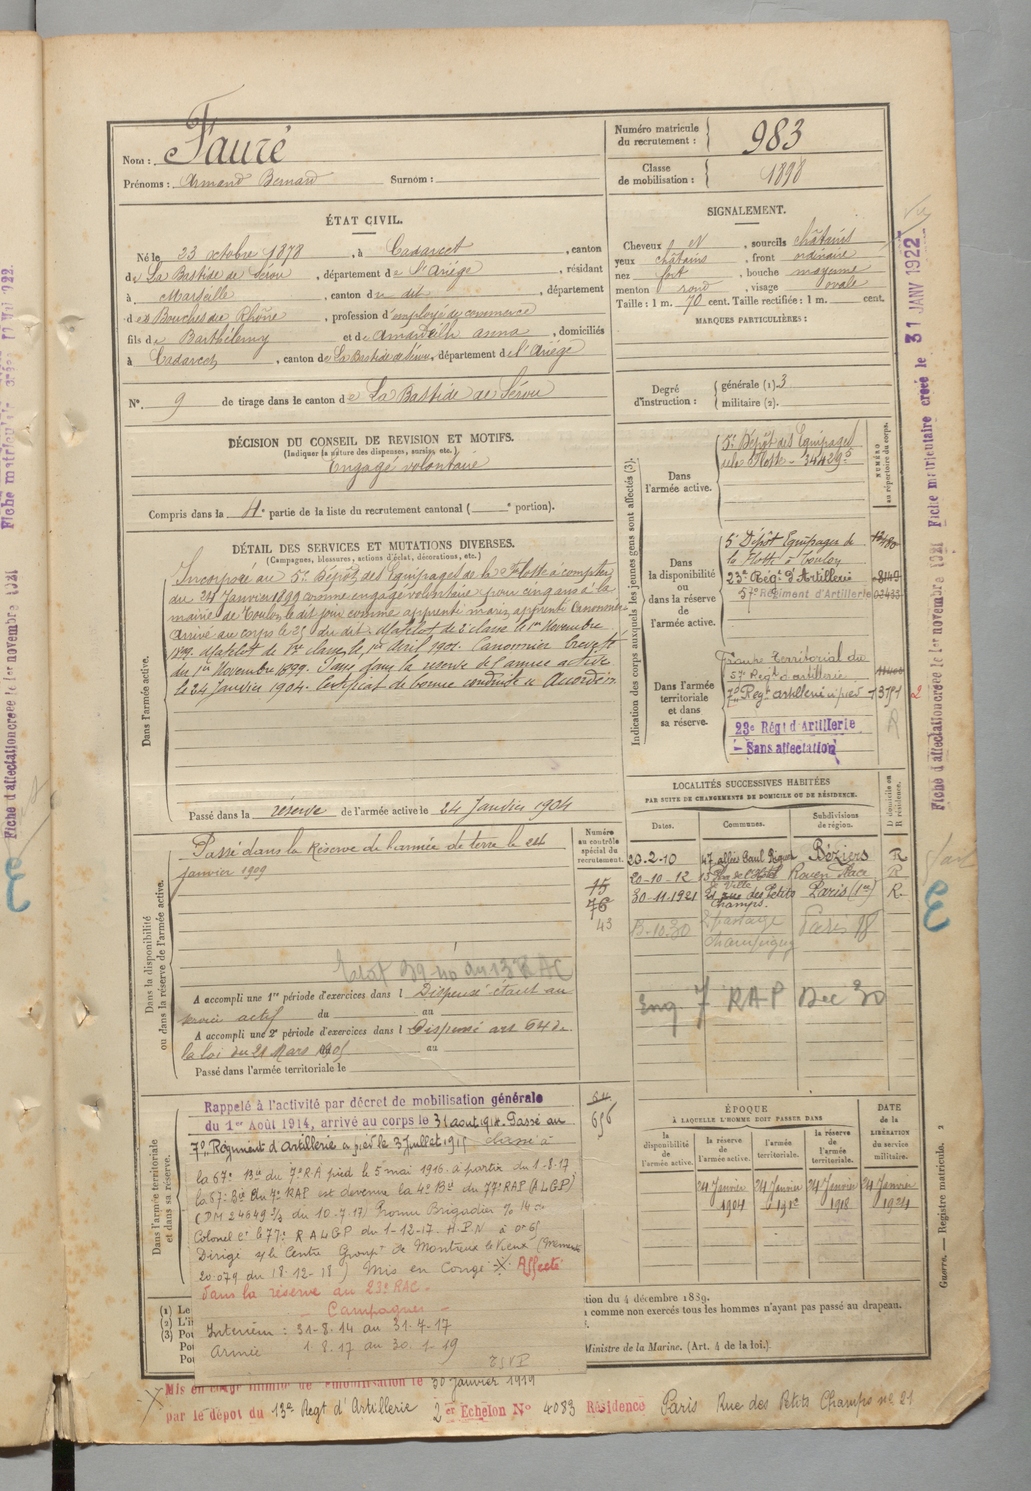 Nom : Fauré
Prénoms : Armand Bernard Surnom :
Numéro matricule du recrutement : 983
Classe de mobilisation : 1898
ÉTAT CIVIL.
Né le 23 octobre 1878, à Cadarcet, canton
de La Bastide de Sérou, département de l'Ariége, résidant
à Marseille, canton du dit, département
des Bouches du Rhône, profession d'employé de commerce
fils de Barthélemy et de Amardeilh, domiciliés
à Cadarcet, canton de La Bastide de Sérou, département de l'Ariége
N°. 9 de tirage dans le canton de La Bastide de Sérou
SIGNALEMENT.
Cheveux N, sourcils châtains
yeux châtains, front ordinaire
nez fort, bouche moyenne
menton rond, visage ovale
Taille : 1 m. 70 cent. Taille rectifiée : 1 m. cent.
MARQUES PARTICULIÈRES :
Degré d'instruction : générale (1). 3
militaire (2).
DÉCISION DU CONSEIL DE REVISION ET MOTIFS.
(Indiquer la nature des dispenses, sursis, etc.)
Engagé volontaire
Compris dans la 4e partie de la liste du recrutement cantonal ( e portion).
DÉTAIL DES SERVICES ET MUTATIONS DIVERSES.
(Campagnes, blessures, actions d'éclat, décorations, etc.)
Dans l'armée active.
Incorporé au 5e Dépôt des Equipages de la Flotte à compter
du 24 Janvier 1899 comme engagé volontaire pour cinq ans à la
mairie de Toulon le dit jour comme apprenti marin, apprenti Canonnier
Arrivé au corps le 25 du dit. Matelot de 3e classe le 1er Novembre
1899. Matelot de 1re classe le 1er Avril 1901. Canonnier breveté
du 1er Novembre 1899. Passé dans la réserve de l'armée active
le 24 Janvier 1904. Certificat de bonne conduite Accordé.
Passé dans la réserve de l'armée active le 24 Janvier 1904
Indication des corps auxquels les jeunes gens sont affectés (3).
NUMÉRO au répertoire du corps.
Dans l'armée active.
5e Dépôt des Equipages
de la Flotte - 34429-5
Dans la disponibilité ou dans la réserve de l'armée active.
5e Dépôt Equipages de
la Flotte à Toulon
23e Régt d'Artillerie 8149
57e Régiment d'Artillerie 02435
Dans l'armée territoriale et dans sa réserve.
Groupe Territorial du
57e Régt d'artillerie
7e Regt artillerie à pied 3191
23e Régt d'Artillerie
- Sans affectation
LOCALITÉS SUCCESSIVES HABITÉES
PAR SUITE DE CHANGEMENTS DE DOMICILE OU DE RÉSIDENCE.
Dates. Communes. Subdivisions de région. D domicile ou R résidence.
20-2-10 47 allées Paul Riquet Béziers R
20-10-12 15 Place de l'Hôtel de Ville Rouen R
30-11-1921 21 rue des Petits Champs. Paris (1er) R
13-10-30 Paris 18
Eng 7 RAP Dec 30
Dans la disponibilité ou dans la réserve de l'armée active.
Numéro au contrôle spécial du recrutement.
Passé dans la Réserve de l'armée de terre le 24
janvier 1909
15
76
43
A accompli une 1re période d'exercices dans l Dispensé étant au
service actif du au
A accompli une 2e période d'exercices dans l Dispensé art 64 de
la loi du 21 Mars 1905 au
Passé dans l'armée territoriale le
Dans l'armée territoriale et dans sa réserve.
Rappelé à l'activité par décret de mobilisation générale
du 1er Août 1914, arrivé au corps le 31 aout 1914. Passé au
7e Régiment d'Artillerie à pied le 3 Juillet 1915 classé à
la 67e Bie du 7e R.A pied le 5 mai 1916. à partir du 1-8-17
la 67e Bie du 7e RAP est devenue la 4e Bie du 77e RAP (ALGP)
(DM 24649 3/3 du 10-7-17) Promu Brigadier
Colonel ct le 77e R ALGP du 1-12-17.
Dirigé s/ le Centre Groupt de Montreux le Vieux
20.079 du 18-12-18) Mis en Congé X Affecté
dans la réserve au 23e RAC.
- Campagnes -
Intérieur : 31-8-14 au 31-7-17
Armée 1.8.17 au 30.1.19
TSVP
646
ÉPOQUE
À LAQUELLE L'HOMME DOIT PASSER DANS
la disponibilité de l'armée active. la réserve de l'armée active. l'armée territoriale. la réserve de l'armée territoriale.
DATE de la LIBÉRATION du service militaire.
24 Janvier 1904 24 Janvier 24 Janvier 1918 24 Janvier 1924
ction du 4 décembre 1889.
comme non exercés tous les hommes n'ayant pas passé au drapeau.
Ministre de la Marine. (Art. 4 de la loi.)
(1) Le
(2) L'i
(3) Pou
Pou
Pou
Guerre. — Registre matricule. 2
X Mis en congé illimité de démobilisation le 30 Janvier 1919
par le dépôt du 13e Regt d'Artillerie 2er Echelon N° 4083 Résidence Paris Rue des Petits Champs n° 21
Fiche d'affectation créée le 1er novembre 1921 Fiche matriculaire créée le 31 JANV 1922
Fiche d'affectation créée le 1er novembre 1921